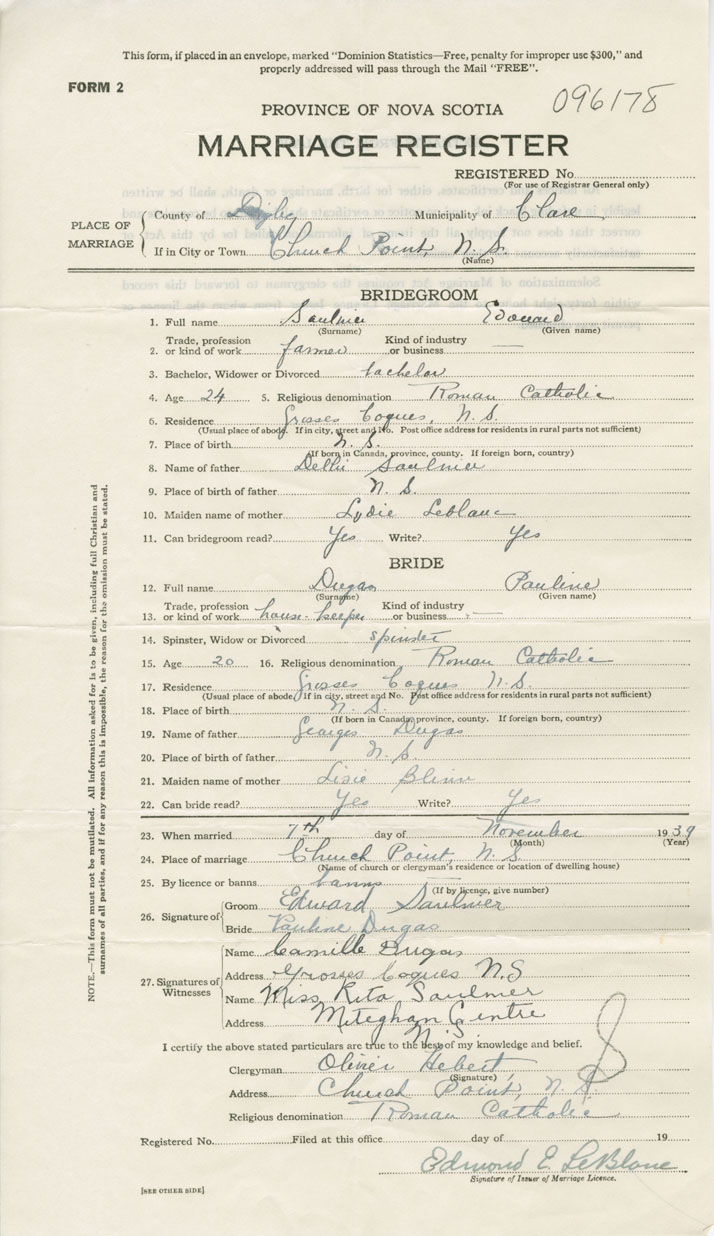 This form, if placed in an envelope, marked "Dominion Statistics—Free, penalty for improper use $300," and
properly addressed will pass through the Mail "FREE".
FORM 2
096178
PROVINCE OF NOVA SCOTIA
MARRIAGE REGISTER
REGISTERED No.
(For use of Registrar General only)
PLACE OF MARRIAGE
County of Digby Municipality of Clare
If in City or Town Church Point, N.S.
(Name)
BRIDEGROOM
1. Full name Saulnier Edouard
(Surname) (Given name)
2. Trade, profession or kind of work farmer Kind of industry or business —
3. Bachelor, Widower or Divorced bachelor
4. Age 24 5. Religious denomination Roman Catholic
6. Residence Grosses Coques, N.S.
(Usual place of abode. If in city, street and No. Post office address for residents in rural parts not sufficient)
7. Place of birth N.S.
(If born in Canada, province, county. If foreign born, country)
8. Name of father Saulnier
9. Place of birth of father N.S.
10. Maiden name of mother Lydie Leblanc
11. Can bridegroom read? Yes Write? Yes
BRIDE
12. Full name Dugas Pauline
(Surname) (Given name)
13. Trade, profession or kind of work house-keeper Kind of industry or business —
14. Spinster, Widow or Divorced spinster
15. Age 20 16. Religious denomination Roman Catholic
17. Residence Grosses Coques N.S.
(Usual place of abode. If in city, street and No. Post office address for residents in rural parts not sufficient)
18. Place of birth N.S.
(If born in Canada, province, county. If foreign born, country)
19. Name of father Georges Dugas
20. Place of birth of father N.S.
21. Maiden name of mother Lisie Blinn
22. Can bride read? Yes Write? Yes
23. When married 7th day of November 1939
(Month) (Year)
24. Place of marriage Church Point, N.S.
(Name of church or clergyman's residence or location of dwelling house)
25. By licence or banns banns
(If by licence, give number)
26. Signature of
Groom Edward Saulnier
Bride Pauline Dugas
27. Signatures of Witnesses
Name Camille Dugas
Address Grosses Coques N.S
Name Miss Rita Saulnier
Address Meteghan Centre
N.S.
I certify the above stated particulars are true to the best of my knowledge and belief.
Clergyman Olivier Hebert
(Signature)
Address Church Point, N.S.
Religious denomination Roman Catholic
Registered No. Filed at this office day of 19
Edmond E LeBlanc
Signature of Issuer of Marriage Licence.
[SEE OTHER SIDE]
NOTE.—This form must not be mutilated. All information asked for is to be given, including full Christian and
surnames of all parties, and if for any reason this is impossible, the reason for the omission must be stated.